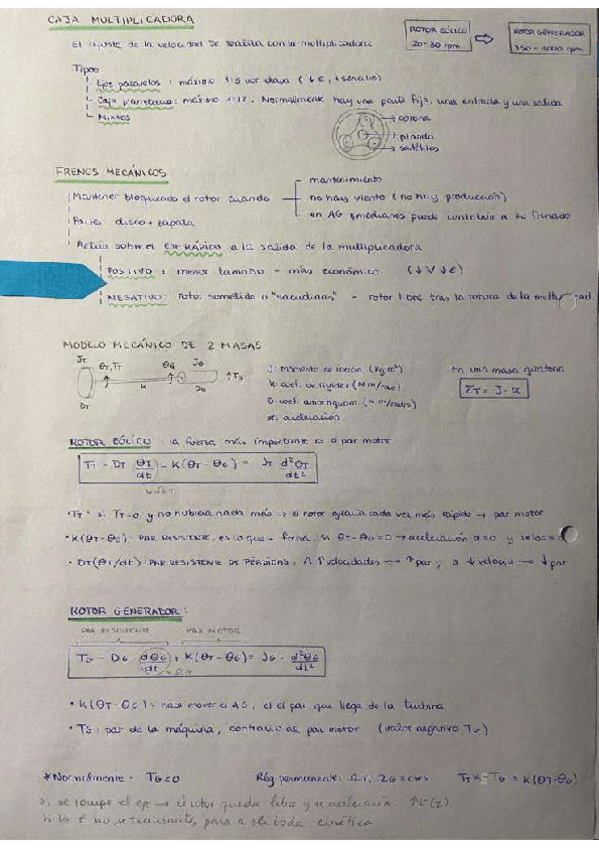 CAJA MULTIPLICADORA
El ajuste de la velocidad se realiza con la multiplicadora
ROTOR EÓLICO
20-30 rpm
ROTOR GENERADOR
750 - 4000 rpm
Tipos
Ejes paralelos : máximo 1:5 por etapa (↓€, ↓
Caja planetaria : máximo 1:12. Normalmente hay una parte fija, una entrada y una salida
Mixtos
corona
planeta
satélites
FRENOS MECÁNICOS
Mantener bloqueado el rotor cuando
mantenimiento
no hay viento (no hay producción)
en AG medianos puede contribuir a su frenado
Partes : disco + zapata
Actúa sobre el EJE RÁPIDO a la salida de la multiplicadora
POSITIVO : menor tamaño - más económico (↓V ↓€)
NEGATIVO : rotor sometido a "sacudidas" - rotor libre tras la rotura de la
MODELO MECÁNICO DE 2 MASAS
J_T θ_T, T_T θ_G J_G T_G
D_T K D_G
J : momento de inercia
K : coef. de rigidez (N m/rad)
D : coef. amortiguam.
α : aceleración
En una masa giratoria
ΣT = J · α
ROTOR EÓLICO : la fuerza más importante es el par motor
T_T - D_T (dθ_T/dt) - K(θ_T - θ_G) = J_T d²θ_T/dt²
· T_T : si T_T>0 y no hubiera nada más → el rotor giraría cada vez más rápido → par motor
· K(θ_T - θ_G) : PAR RESISTENTE, es lo que frena. Si θ_T - θ_G = 0 → aceleración α=0 y
· D_T(θ_T/dt) : PAR RESISTENTE DE PÉRDIDAS. A ↑ velocidades → ↑ par ; a ↓ → ↓ par
ROTOR GENERADOR :
PAR RESISTENTE PAR MOTOR
T_G - D_G (dθ_G/dt) + K(θ_T - θ_G) = J_G · d²θ_G/dt²
· K(θ_T - θ_G) : hace mover el AG, es el par que llega de la turbina
· T_G : par de la máquina, contrario al par motor (valor negativo T_G)
*Normalmente · T_G<0 Rég permanente :
Si se rompe el eje → el rotor queda libre y se acelerará.